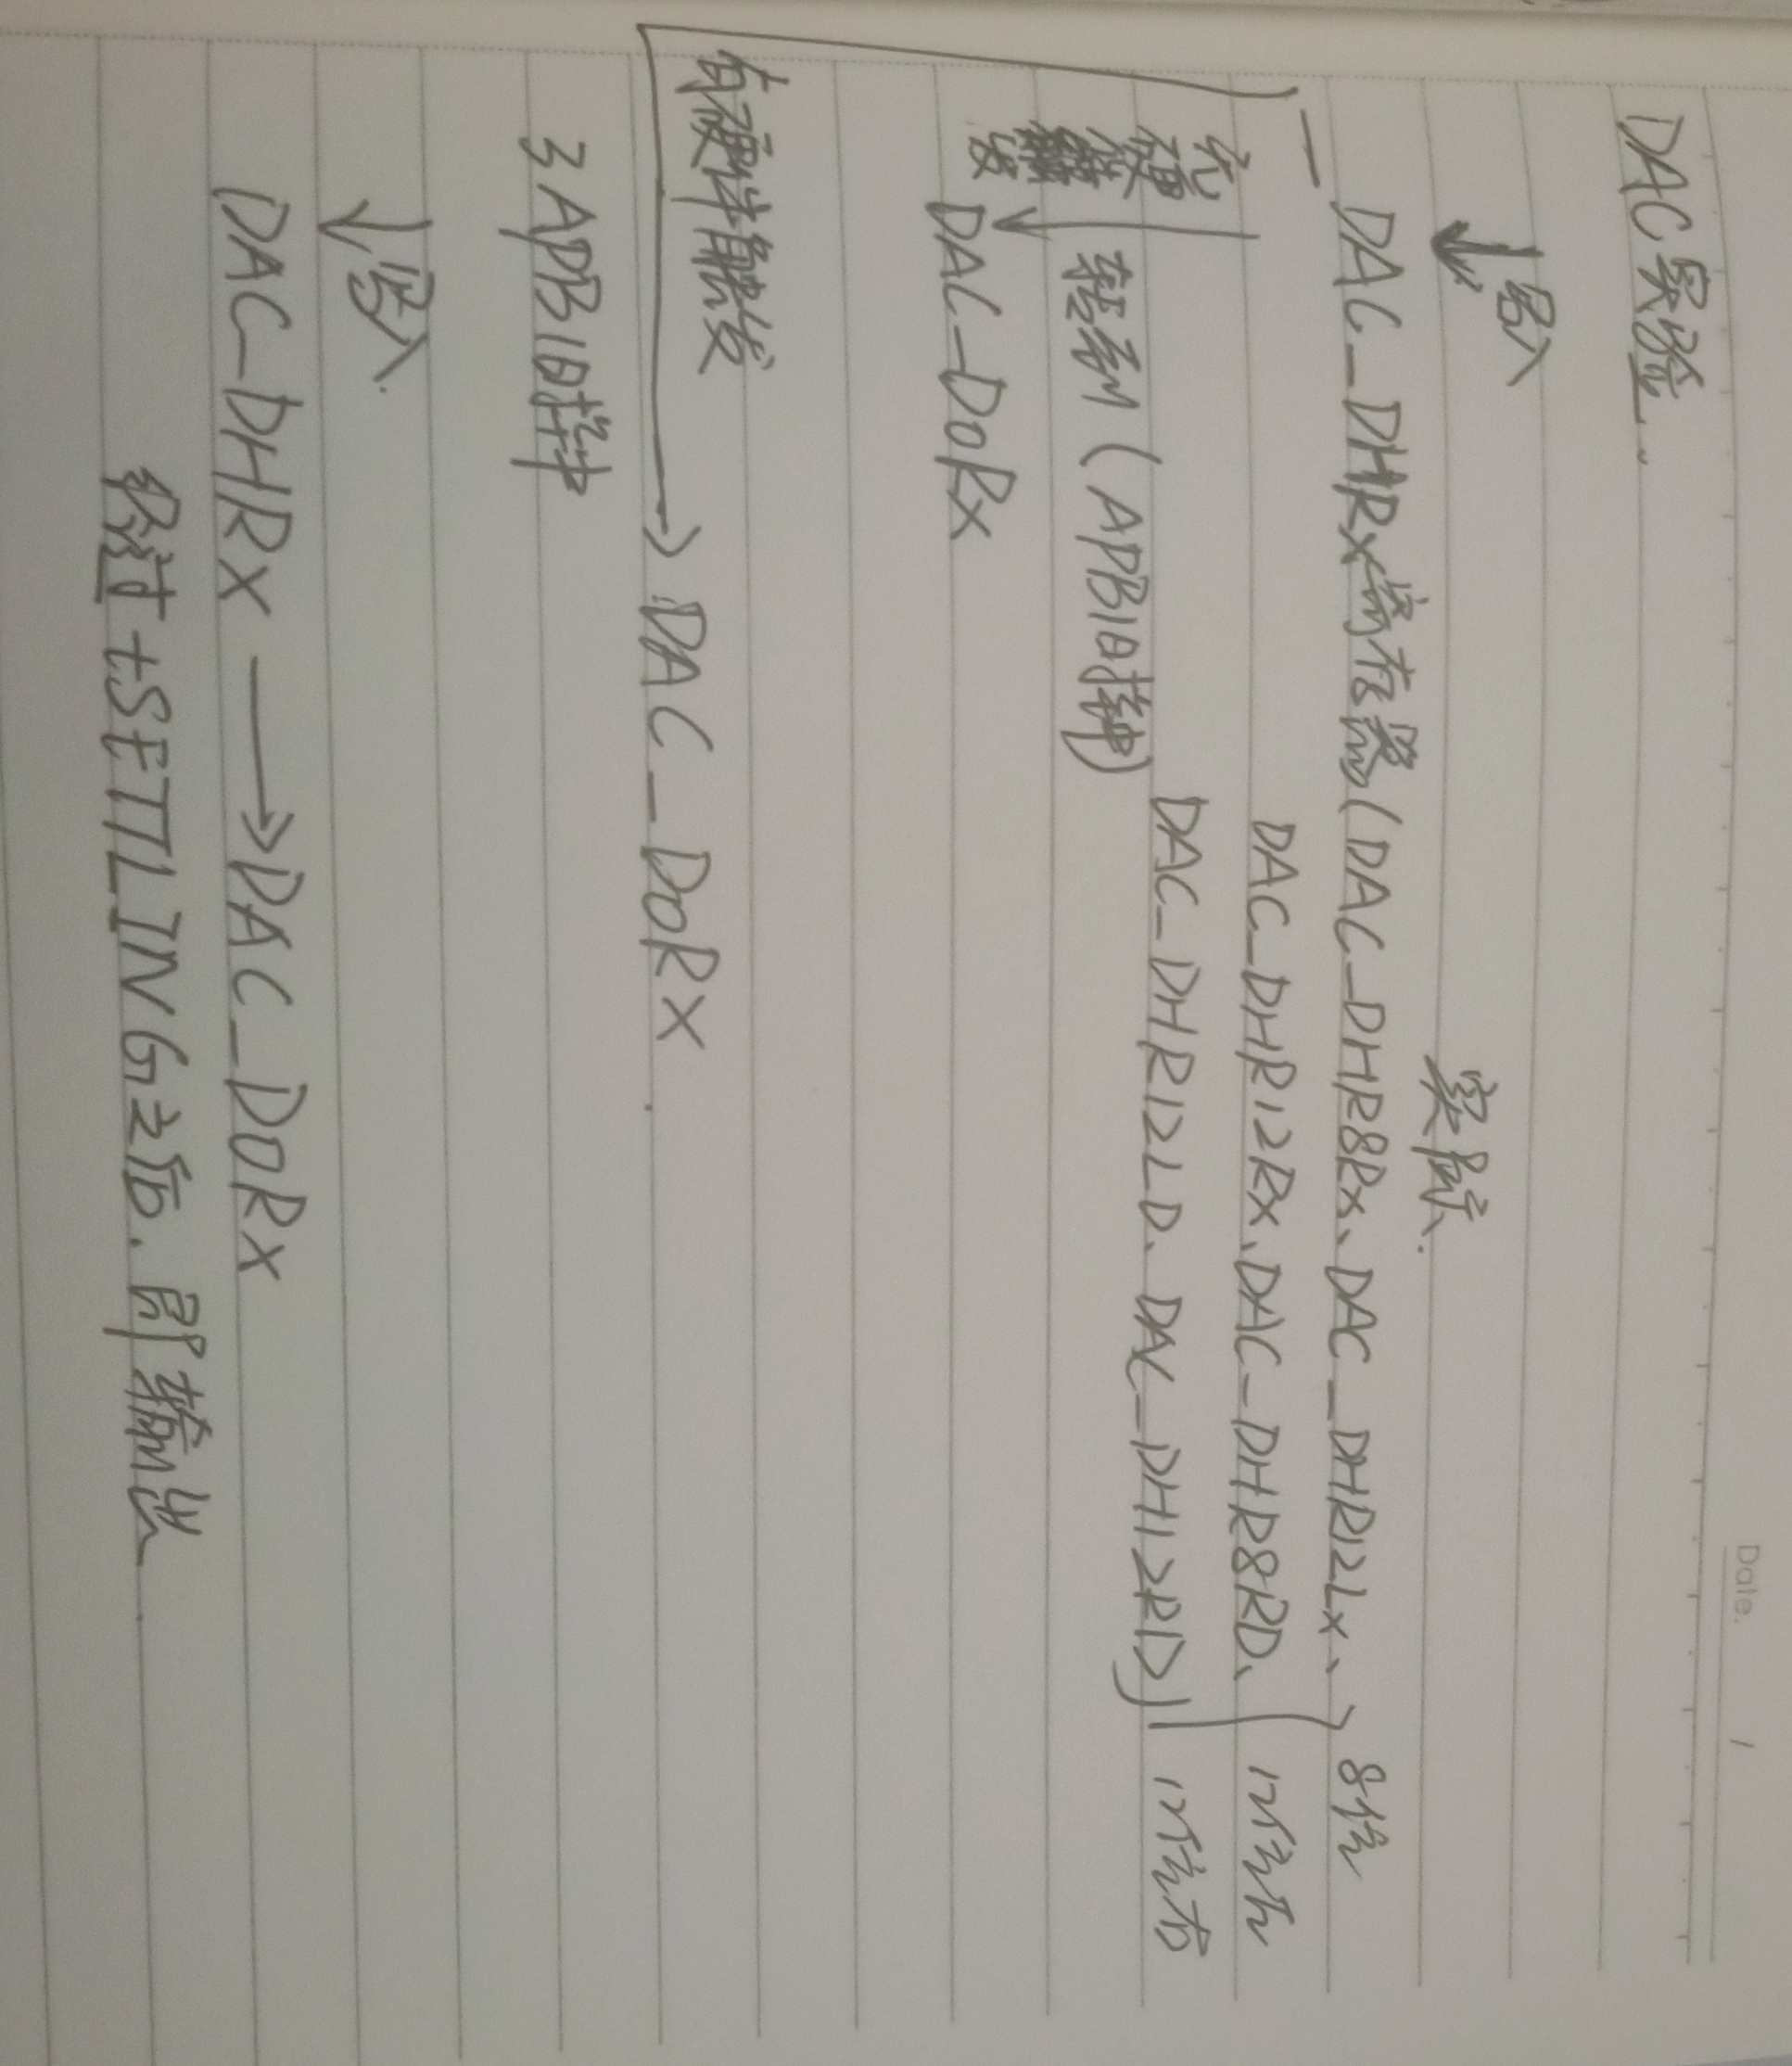 Date. /
DAC实验.
↓写入 实际.
DAC_DHRx寄存器(DAC_DHR8Rx、DAC_DHR12Lx、 8位
DAC_DHR12Rx、DAC_DHR8RD、 12位左
DAC_DHR12LD、DAC_DH12RD) 12位右
无硬 发
转到(APB1时钟)
DAC_DoRx
有硬件触发
→ DAC_DoRx.
3APB1时钟
↓写入.
DAC_DHRx → DAC_DoRx
经过tSETTLING之后.即输出